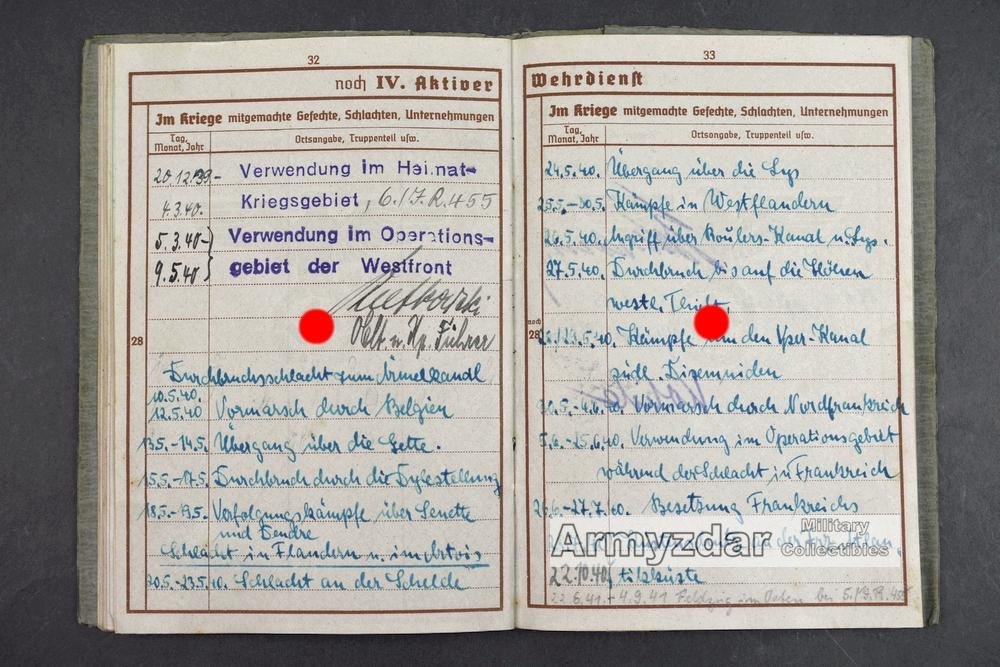 32
noch IV. Aktiver
Im Kriege mitgemachte Gefechte, Schlachten, Unternehmungen
Tag, Monat, Jahr
Ortsangabe, Truppenteil usw.
20.12.39- Verwendung im Heimat-
4.3.40. Kriegsgebiet, 6./J.R.455
5.3.40-} Verwendung im Operations-
9.5.40} gebiet der Westfront
Oblt. u. Kp. Führer
28
Durchbruchsschlacht zum Ärmelkanal
10.5.40.
12.5.40 Vormarsch durch Belgien
13.5.-14.5. Übergang über die Gette.
15.5.-17.5. Durchbruch durch die Dylestellung
18.5.-19.5. Verfolgungskämpfe über Senette
und Dendre
Schlacht in Flandern u. im Artois
20.5.-23.5.40. Schlacht an der Schelde
33
Wehrdienst
Im Kriege mitgemachte Gefechte, Schlachten, Unternehmungen
Tag, Monat, Jahr
Ortsangabe, Truppenteil usw.
24.5.40. Übergang über die Lys
25.5.-30.5. Kämpfe in Westflandern
26.5.40. Angriff über Roulers-Kanal n. Lys.
27.5.40. Durchbruch bis auf die Höhen
westl. Thielt.
noch 28
Kämpfe um den Yser-Kanal
südl. Dixmuiden
Vormarsch durch Nordfrankreich
5.6.-25.6.40. Verwendung im Operationsgebiet
während der Schlacht in Frankreich
26.6.-27.7.40. Besetzung Frankreichs
der frz. Atlan.
22.10.40 tikküste
22.6.41.-4.9.41 Feldzug im Osten bei 5./J.R.455
Armyzdar
Military
Collectibles